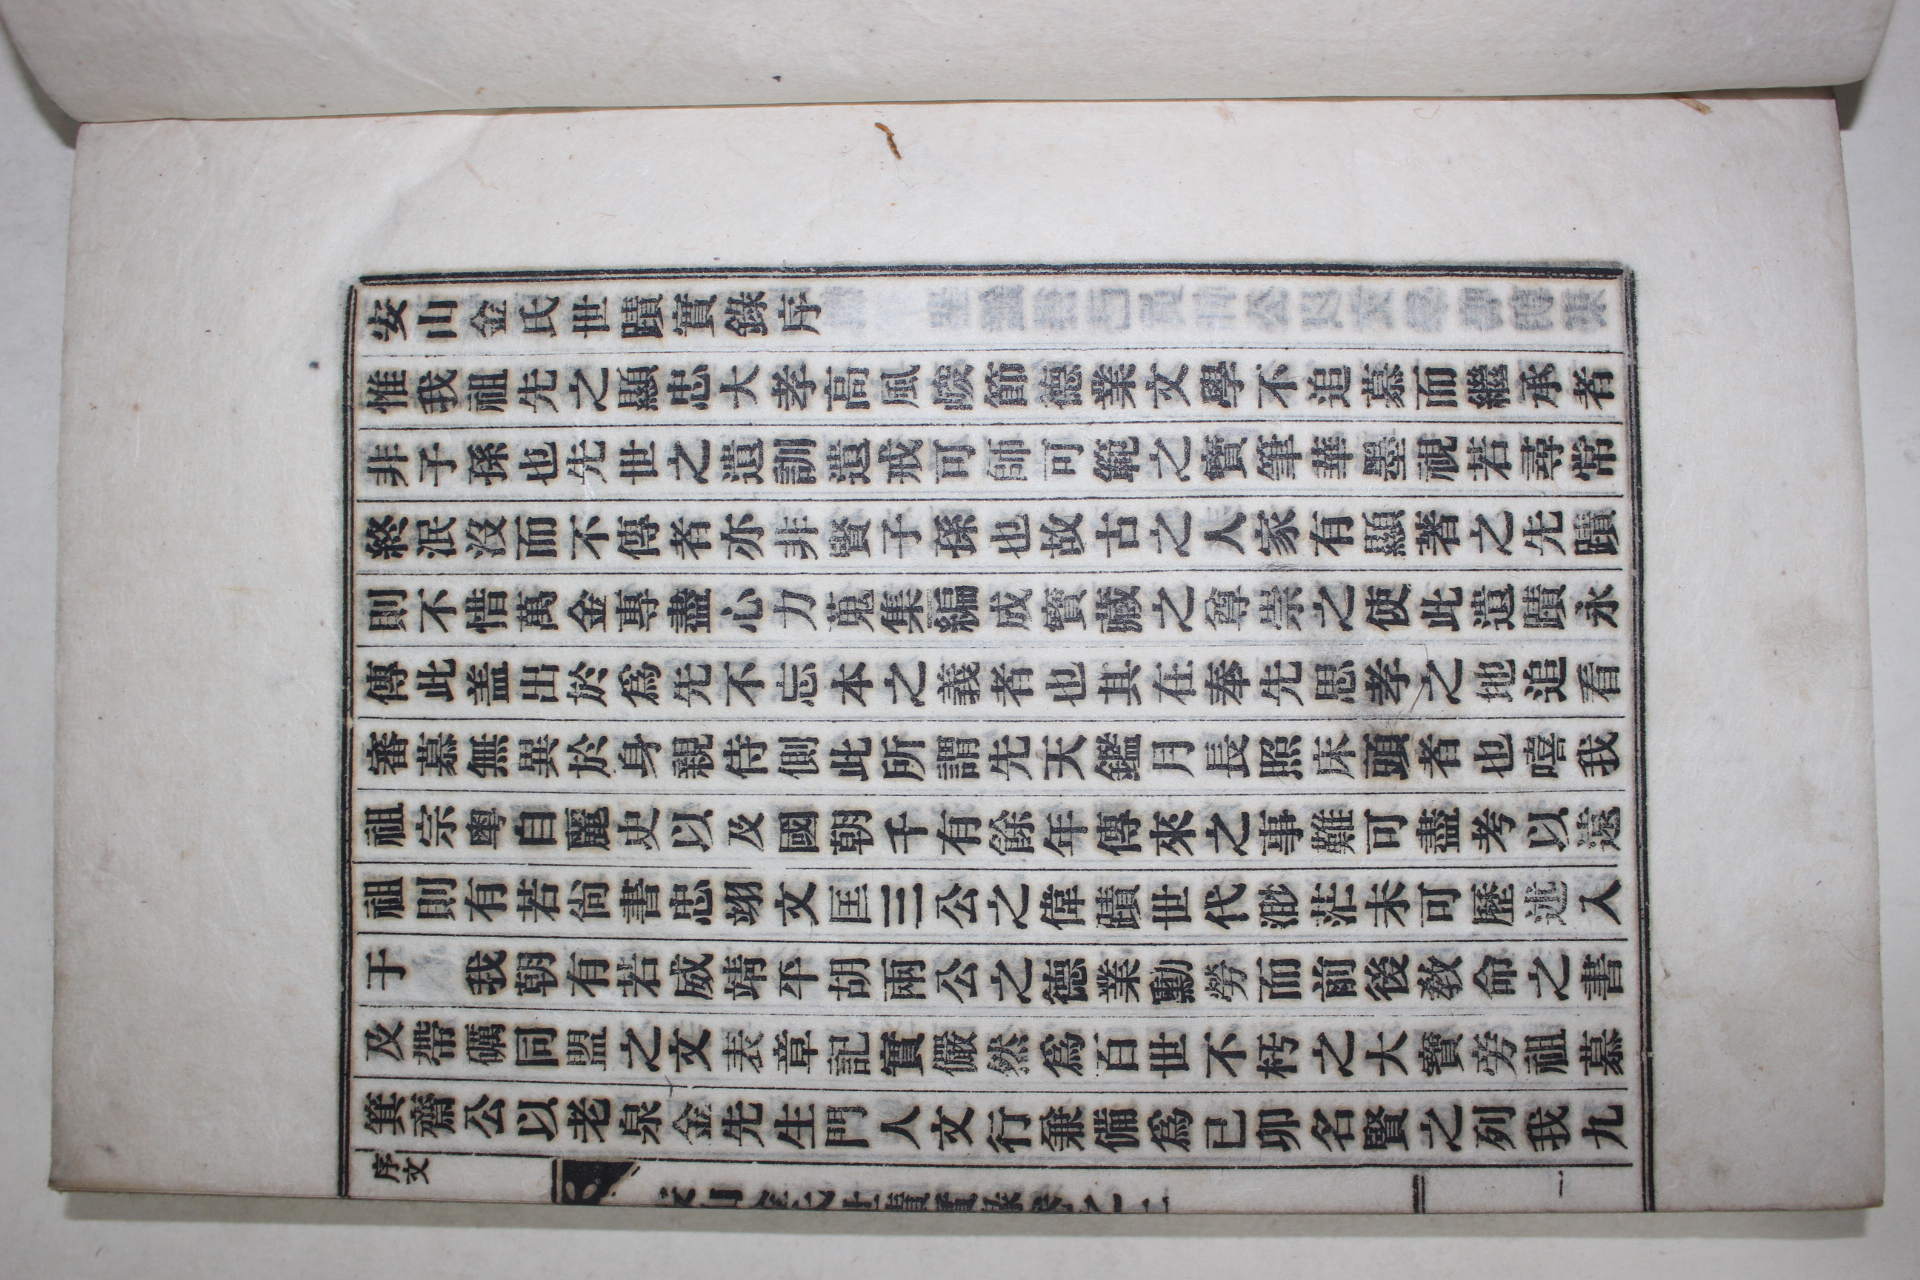 安山金氏世蹟實錄序
惟我祖先之顯忠大孝高風峻節德業文學不追慕而繼承者
非子孫也先世之遺訓遺戒可師可範之寶筆華墨視若尋常
終泯沒而不傳者亦非賢子孫也故古之人家有顯著之先蹟
則不惜萬金專盡心力蒐集編成寶藏之尊崇之使此遺蹟永
傳此盖出於爲先不忘本之義者也其在奉先思孝之地追看
審慕無異於身親侍側此所謂先天鑑月長照床頭者也嘻我
祖宗粤自麗史以及國朝千有餘年傳來之事難可盡考以遠
祖則有若尙書忠翊文匡三公之偉蹟世代渺茫未可歷述入
于　我朝有若威靖平胡兩公之德業勳勞而前後敎命之書
及帶礪同盟之文表章記實儼然爲百世不朽之大寶旁祖慕
箕齋公以老泉金先生門人文行兼備爲已卯名賢之列我九
序文
安山金氏世蹟實錄卷之上
一